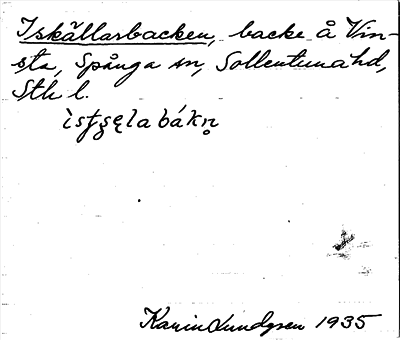 Iskällarbacken, backe å Vin-
sta, Spånga sn, Sollentuna hd,
Sth l.
Karin Lundgren 1935